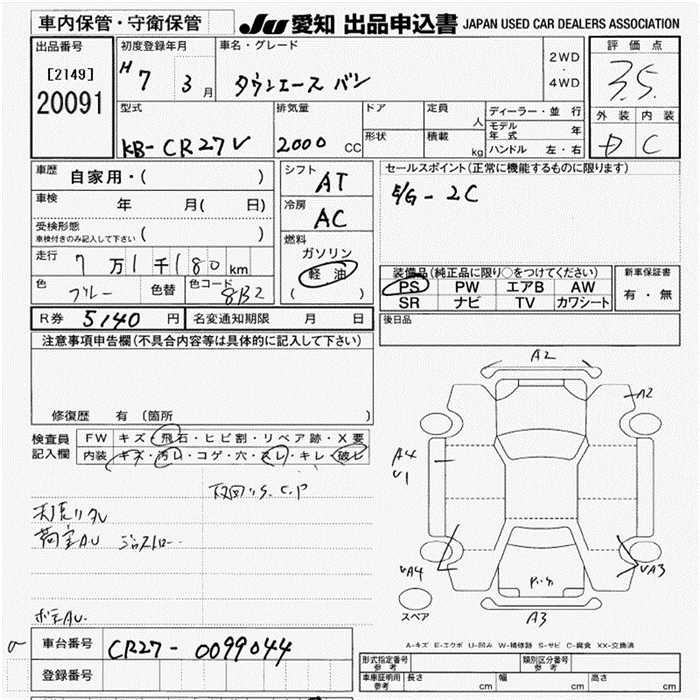 車内保管・守衛保管
JU 愛知 出品申込書 JAPAN USED CAR DEALERS ASSOCIATION
出品番号
[2149]
20091
初度登録年月
H 7 3 月
車名・グレード
タウンエース バン
2WD
・
4WD
評価点
3.5
外装 内装
D C
型式
KB-CR27V
排気量
2000 CC
ドア
定員
人
形状
積載
kg
ディーラー・並行
モデル年式 年
ハンドル 左・右
車歴 自家用・( )
車検 年 月( 日)
受検形態
車検付きのみ記入して下さい ( )
走行 7 万 1 千 180 km
色 ブルー 色替 色コード 8B2
シフト
AT
冷房
AC
燃料
ガソリン
軽油
( )
セールスポイント(正常に機能するものに限ります)
E/G - 2C
装備品(純正品に限り○をつけてください)
PS PW エアB AW
SR ナビ TV カワシート
新車保証書
有・無
R券 5140 円 名変通知期限 月 日
後日品
注意事項申告欄(不具合内容等は具体的に記入して下さい)
修復歴 有 (箇所 )
検査員
記入欄
FW キズ・飛石・ヒビ割・リペア跡・X要
内装 キズ・汚レ・コゲ・穴・スレ・キレ・破レ
荷室AU
A2
A2
A4
V1
VA4
VA3
A3
スペア
A-キズ E-エクボ U-凹み W-補修跡 S-サビ C-腐食 XX-交換済
車台番号 CR27-0099044
登録番号
形式指定番号
参考
類別区分番号
参考
車庫証明用
参考
長さ cm 幅 cm 高さ cm